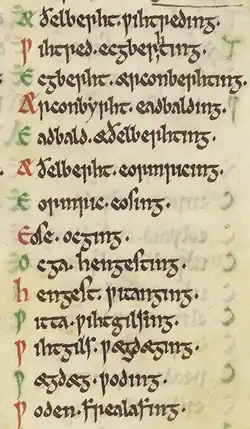 Æðelberht . ƿihtreding .
ƿihtred . ecgberhting .
Ecgberht . ærconberhting .
Ærconbyrht . eadbalding .
Eadbald . æðelberhting .
Æðelberht . eormricing .
Eormric . eosing .
Eose . ocging .
Ocga . hengesting .
hengest . ƿitanging .
ƿitta . ƿihtgilsing .
ƿihtgils . ƿægdæging .
ƿægdæg . ƿoding .
ƿoden . frealafing .